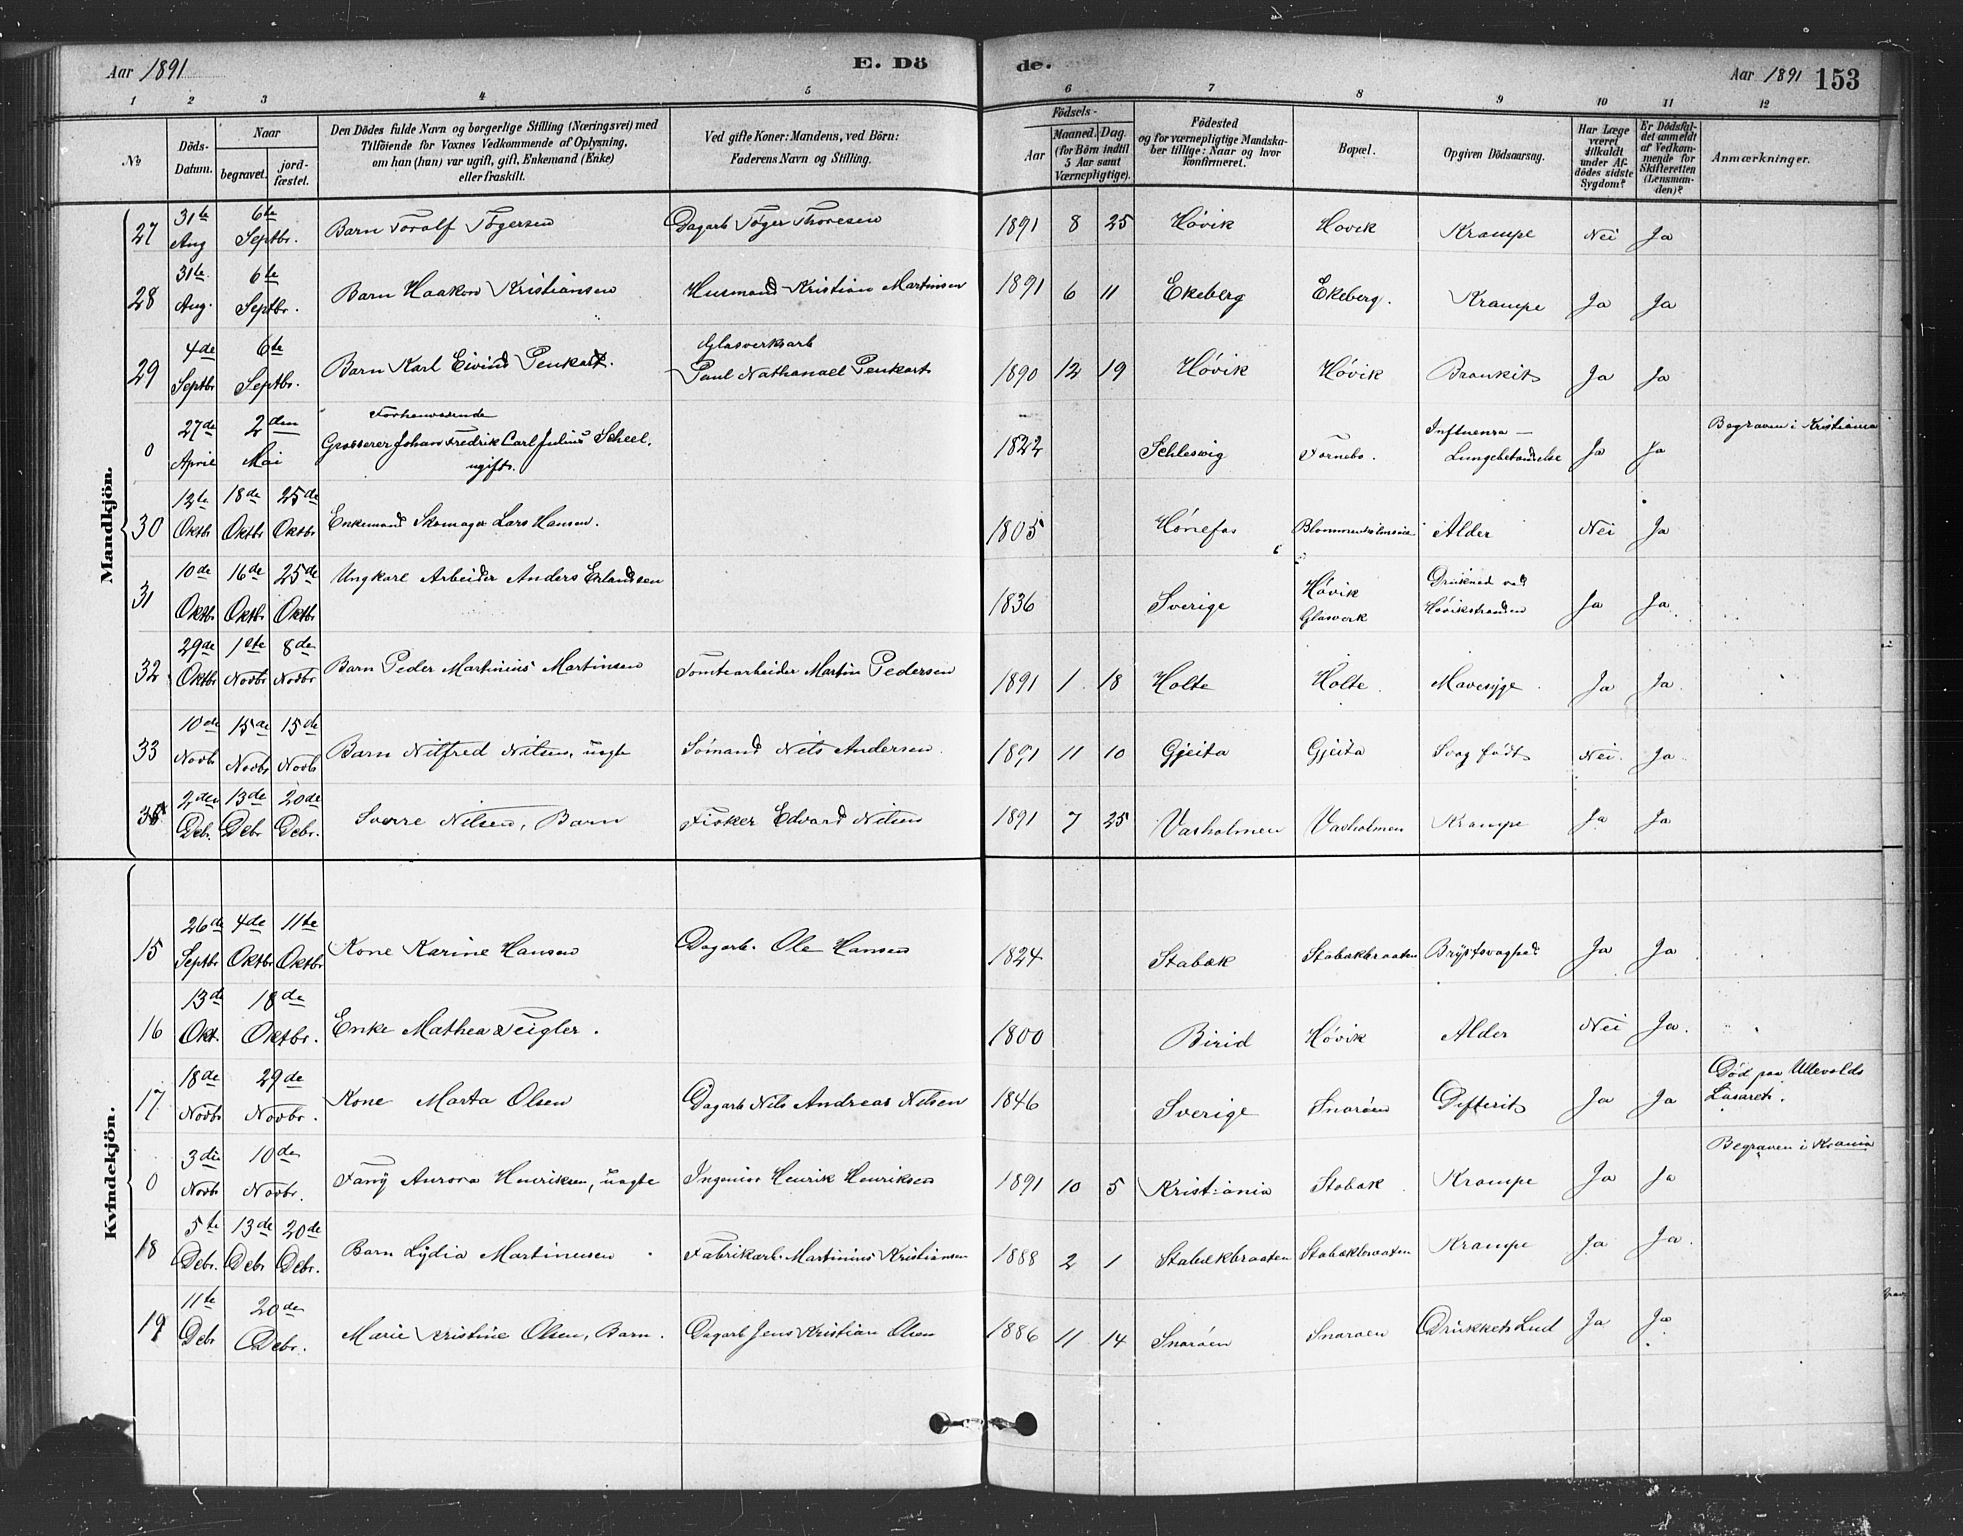 Aar 1891 E. Dö de. Aar 1891 153
1 2 3 4 5 6 7 8 9 10 11 12
No
Döds-Datum.
Naar
begravet.
jord-fæstet.
Den Dödes fulde Navn og borgerlige Stilling (Næringsvei) med
Tilföiende for Voxnes Vedkommende af Oplysning,
om han (hun) var ugift, gift, Enkemand (Enke)
eller fraskilt.
Ved gifte Koner: Mandens, ved Börn:
Faderens Navn og Stilling.
Födsels-
Aar
Maaned. Dag.
(for Börn indtil
5 Aar samt
Værnepligtige).
Födested
og for værnepligtige Mandska-
ber tillige: Naar og hvor
konfirmeret.
Bopæl.
Opgiven Dödsaarsag.
Har Læge
været
tilkaldt
under Af-
dödes sidste
Sygdom?
Er Dödsfal-
det anmeldt
af Vedkom-
mende for
Skifteretten
(Lensman-
den)?
Anmærkninger.
Mandkjön.
27 31te Aug 6te Septbr. Barn Toralf Tögersen Dagarb Töger Thoresen 1891 8 25 Høvik Hovik Krampe Nei Ja
28 31te Aug. 6te Septbr. Barn Haakon Kristiansen Husmand Kristian Martinsen 1891 6 11 Ekeberg Ekeberg. Krampe Ja Ja
29 4de Septbr 6te Septbr. Barn Karl Eivind Penkert. Glasverksarb Paul Nathanael Penkert 1890 12 19 Høvik Høvik Bronkit Ja Ja
0 27de April 2den Mai Forhenværende Grosserer Johan Fredrik Carl Julius Scheel. ugift. 1822 Schleswig Fornebo. Influensa - Lungebetændelse Ja Ja Begraven i Kristiania
30 12te Oktbr 18de Oktbr 25de Oktbr Enkemand Skomager Lars Hansen. 1805 Hønefos Alder Nei Ja
31 10de Oktbr 16de Oktbr 25de Oktbr Ungkarl Arbeider Anders Erlandsen 1836 Sverige Høvik Glasverk Drukned ved Høvikstranden Ja Ja
32 29de Oktbr 1ste Novbr 8de Novbr Barn Peder Martinius Martinsen Tomtearbeider Martin Pedersen 1891 1 18 Holte Holte. Mavesyge. Ja Ja.
33 10de Novb 15de Novbr 15de Novb Barn Nilfred Nilsen, uægte Sömand Nils Andersen. 1891 11 10 Gjeita Gjeita Svag født Nei. Ja
2den Debr. 13de Debr 20de Debr. Sverre Nilsen, Barn Fisker Edvard Nilsen 1891 7 25 Vasholmen Vasholmen Krampe Ja Ja
Kvindekjön.
15 26de Septbr 4de Oktbr 11te Oktbr Kone Karine Hansen Dagarb. Ole Hansen 1824 Stabæk Stabækbraaten Brystsvaghed Ja Ja
16 13de Okt. 18de Oktbr. Enke Mathea 1800 Birid Høvik Alder Nei Ja.
17 18de Novbr 29de Novbr. Kone Marta Olsen Dagarb Nils Andreas Nilsen 1846 Sverige Snarøen Difterit Ja Ja Död paa Ullevolds Lasaret.
0 3die Novb 10de Novbr. Fany Aurora Henriksen, uægte Ingeniør Henrik Henriksen 1891 10 5 Kristiania Stabæk Krampe Ja Ja Begraven i Krania
18 5te Debr. 13de Debr 20de Debr. Barn Lydia Martinusen Fabrikarb. Martinius Kristiansen 1888 2 1 Stabækbraaten Stabækbraaten Krampe Ja Ja.
19 11te Debr 20de Debr. Marie Kristine Olsen, Barn. Dagarb Jens Kristian Olsen 1886 11 14 Snarøen Snarøen Drukket Lud Ja Ja